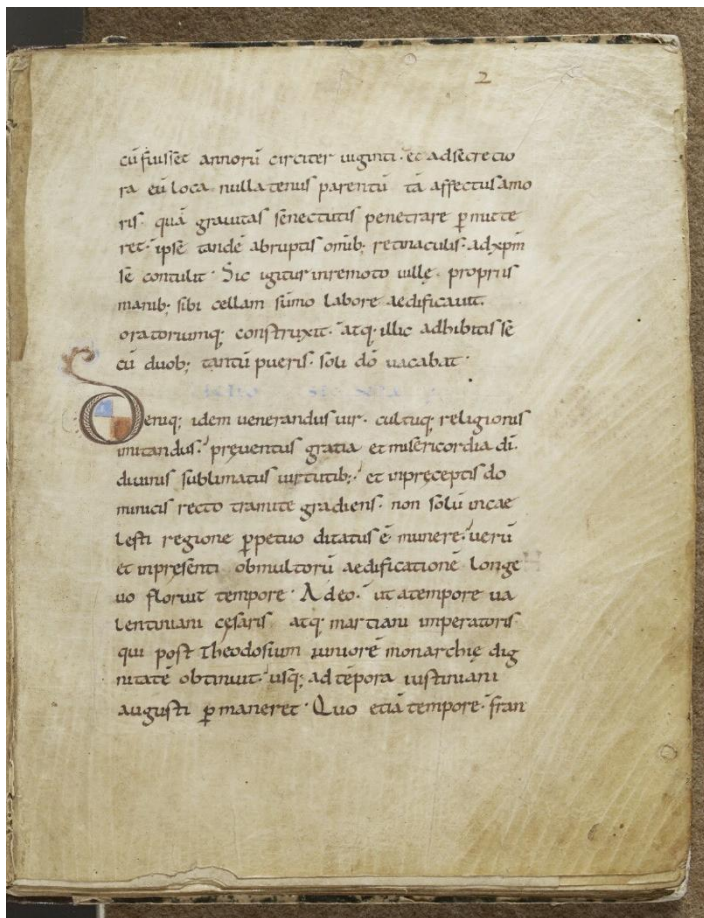 2
cū fuisset annorū circiter uiginti· et ad secretio
ra eū loca· nullatenus parentū tā affectus amo
ris· quā grauitas senectutis penetrare p̄mitte
ret· ipse tandē abruptis omib; retinaculis· ad xp̄m
se contulit· Sic igitur in remoto uillę· propriis
manib; sibi cellam sūmo labore aedificauit·
oratoriumq; construxit· atq· illic adhibitis se
cū duob; tantū pueris· soli dō uacabat·
Deniq; idem uenerandus uir· cultuq; religionis
imitandus· preuentus gratia et misericordia dī·
diuinis sublimatus uirtutib; et in pręceptis do
minicis recto tramite gradiens· non solū in cae
lesti regione p̄petuo ditatus ē munere· uerū
et in presenti ob multorū aedificationē longe
uo floruit tempore· Adeo· ut a tempore ua
lentiniani cęsaris atq· martiani imperatoris·
qui post Theodosium iuniorē monarchię dig
nitatē obtinuit· usq; ad tēpora iustiniani
augusti p̄maneret· Quo etiā tempore· fran